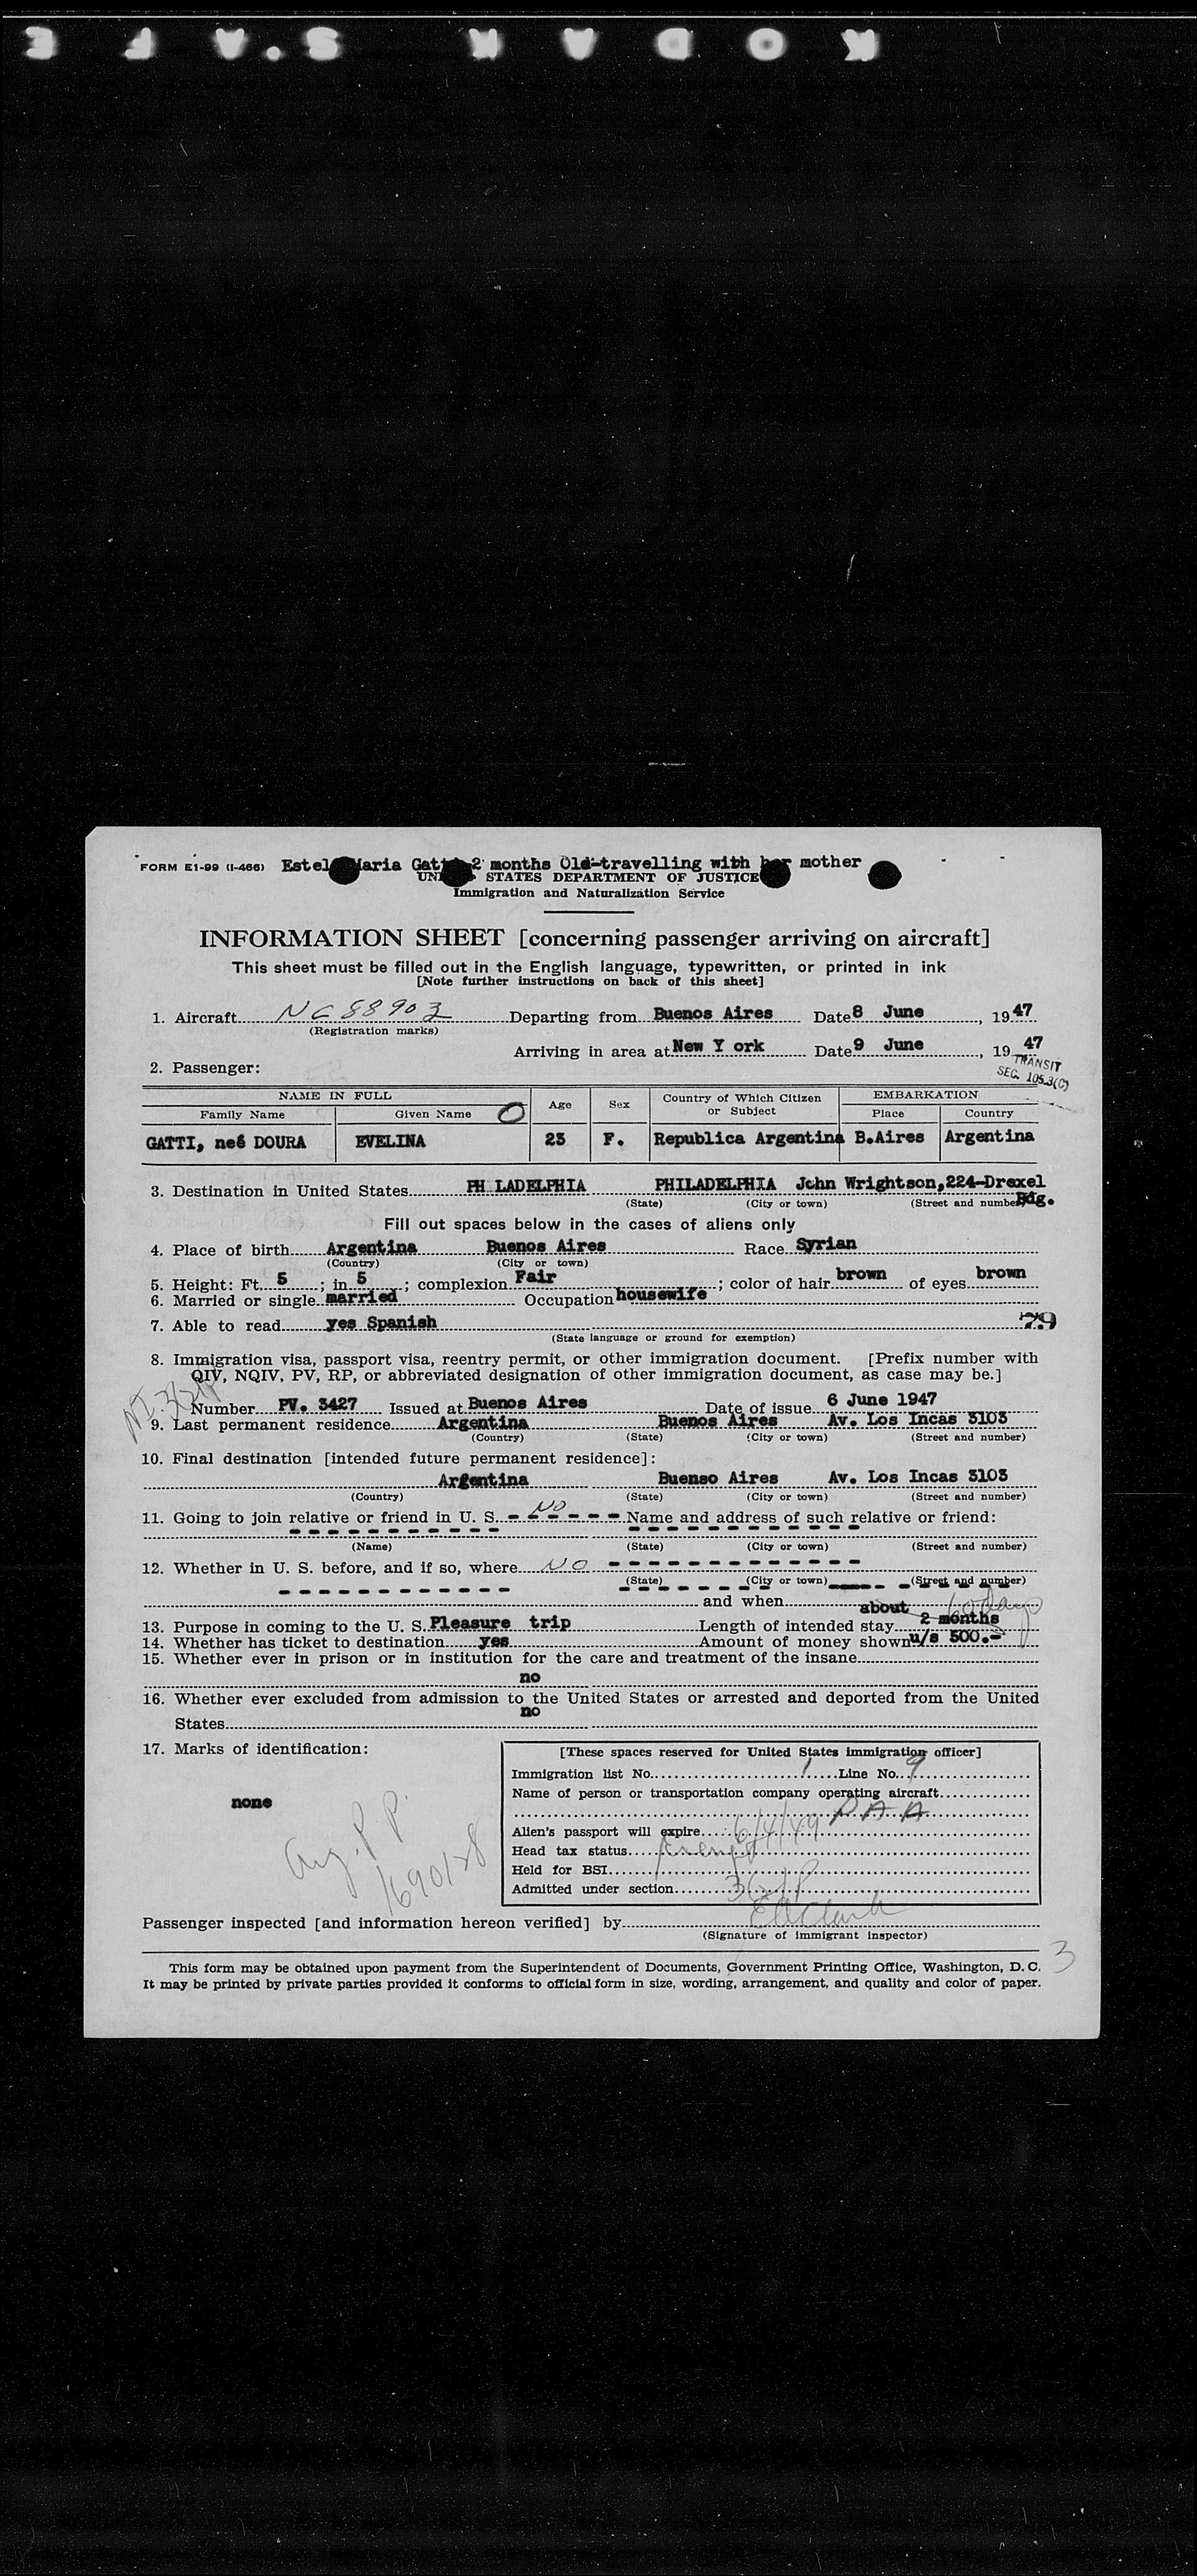 KODAK S.A F E
FORM E1-99 (I-466) Estel Maria Gatti 2 months Old-travelling with her mother
UNITED STATES DEPARTMENT OF JUSTICE
Immigration and Naturalization Service
INFORMATION SHEET [concerning passenger arriving on aircraft]
This sheet must be filled out in the English language, typewritten, or printed in ink
[Note further instructions on back of this sheet]
1. Aircraft NC 88903 Departing from Buenos Aires Date 8 June, 1947
(Registration marks)
Arriving in area at New Y ork Date 9 June, 1947
TRANSIT
SEC. 105.3(C)
2. Passenger:
NAME IN FULL Age Sex Country of Which Citizen or Subject EMBARKATION
Family Name Given Name Place Country
GATTI, neé DOURA EVELINA 23 F. Republica Argentina B.Aires Argentina
3. Destination in United States PH LADELPHIA PHILADELPHIA John Wrightson,224-Drexel Bdg.
(State) (City or town) (Street and number)
Fill out spaces below in the cases of aliens only
4. Place of birth Argentina Buenos Aires Race Syrian
(Country) (City or town)
5. Height: Ft. 5; in 5; complexion Fair; color of hair brown of eyes brown
6. Married or single married Occupation housewife
7. Able to read yes Spanish 79
(State language or ground for exemption)
8. Immigration visa, passport visa, reentry permit, or other immigration document. [Prefix number with
QIV, NQIV, PV, RP, or abbreviated designation of other immigration document, as case may be.]
Number PV. 3427 Issued at Buenos Aires Date of issue 6 June 1947
9. Last permanent residence Argentina Buenos Aires Av. Los Incas 3103
(Country) (State) (City or town) (Street and number)
10. Final destination [intended future permanent residence]:
Argentina Buenso Aires Av. Los Incas 3103
(Country) (State) (City or town) (Street and number)
11. Going to join relative or friend in U. S. NO Name and address of such relative or friend:
(Name) (State) (City or town) (Street and number)
12. Whether in U. S. before, and if so, where NO
(State) (City or town) (Street and number)
and when
13. Purpose in coming to the U. S. Pleasure trip Length of intended stay about 2 months 60 days
14. Whether has ticket to destination yes Amount of money shown u/s 500.-
15. Whether ever in prison or in institution for the care and treatment of the insane
no
16. Whether ever excluded from admission to the United States or arrested and deported from the United
States no
17. Marks of identification:
none
Arg. P.P.
169018
[These spaces reserved for United States immigration officer]
Immigration list No. 1 Line No. 9
Name of person or transportation company operating aircraft
PAA
Alien's passport will expire 6/4/49
Head tax status exempt
Held for BSI
Admitted under section
Passenger inspected [and information hereon verified] by EAClark
(Signature of immigrant inspector)
3
This form may be obtained upon payment from the Superintendent of Documents, Government Printing Office, Washington, D. C.
It may be printed by private parties provided it conforms to official form in size, wording, arrangement, and quality and color of paper.